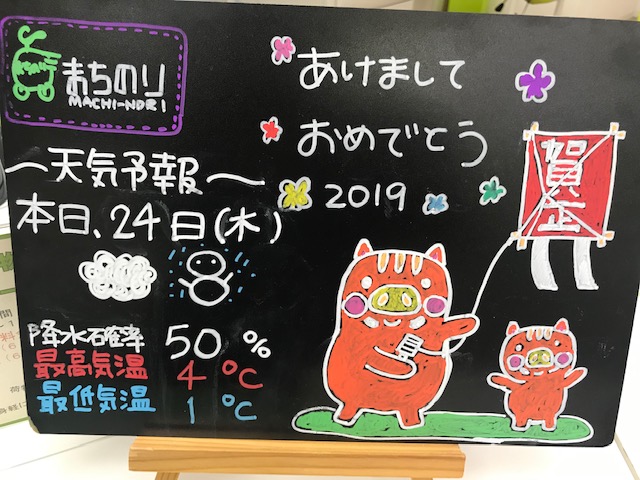 まちのり
MACHI-NORI
あけまして
おめでとう
2019
賀正
〜天気予報〜
本日、24日(木)
降水確率 50 %
最高気温 4 ℃
最低気温 1 ℃